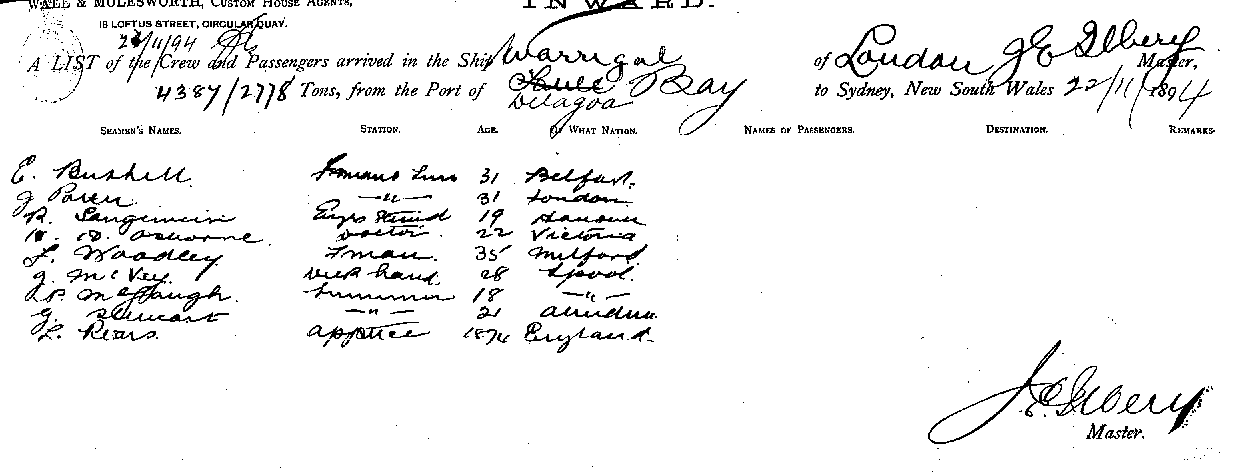 WALL & MOLESWORTH, CUSTOM HOUSE AGENTS,
INWARD.
18 LOFTUS STREET, CIRCULAR QUAY.
A LIST of the Crew and Passengers arrived in the Ship Warrigal of London J E Ilbery Master,
4387/2778 Tons, from the Port of Delagoa Bay to Sydney, New South Wales 22/11/1894
SEAMEN'S NAMES. STATION. AGE. OF WHAT NATION. NAMES OF PASSENGERS. DESTINATION. REMARKS.
E. Bushell 31 Belfast.
J 31 London
R. Engrs 19 Hanover
Osborne. Doctor. 22 Victoria
L. Woodley Fman 35 Milford
J. McVey. Deck hand. 28 Lpool.
McGaugh. Trimmer 18 -"-
J. Stewart -"- 21
L. Pears. Apptice 1874 England.
J. E. Ilbery
Master.